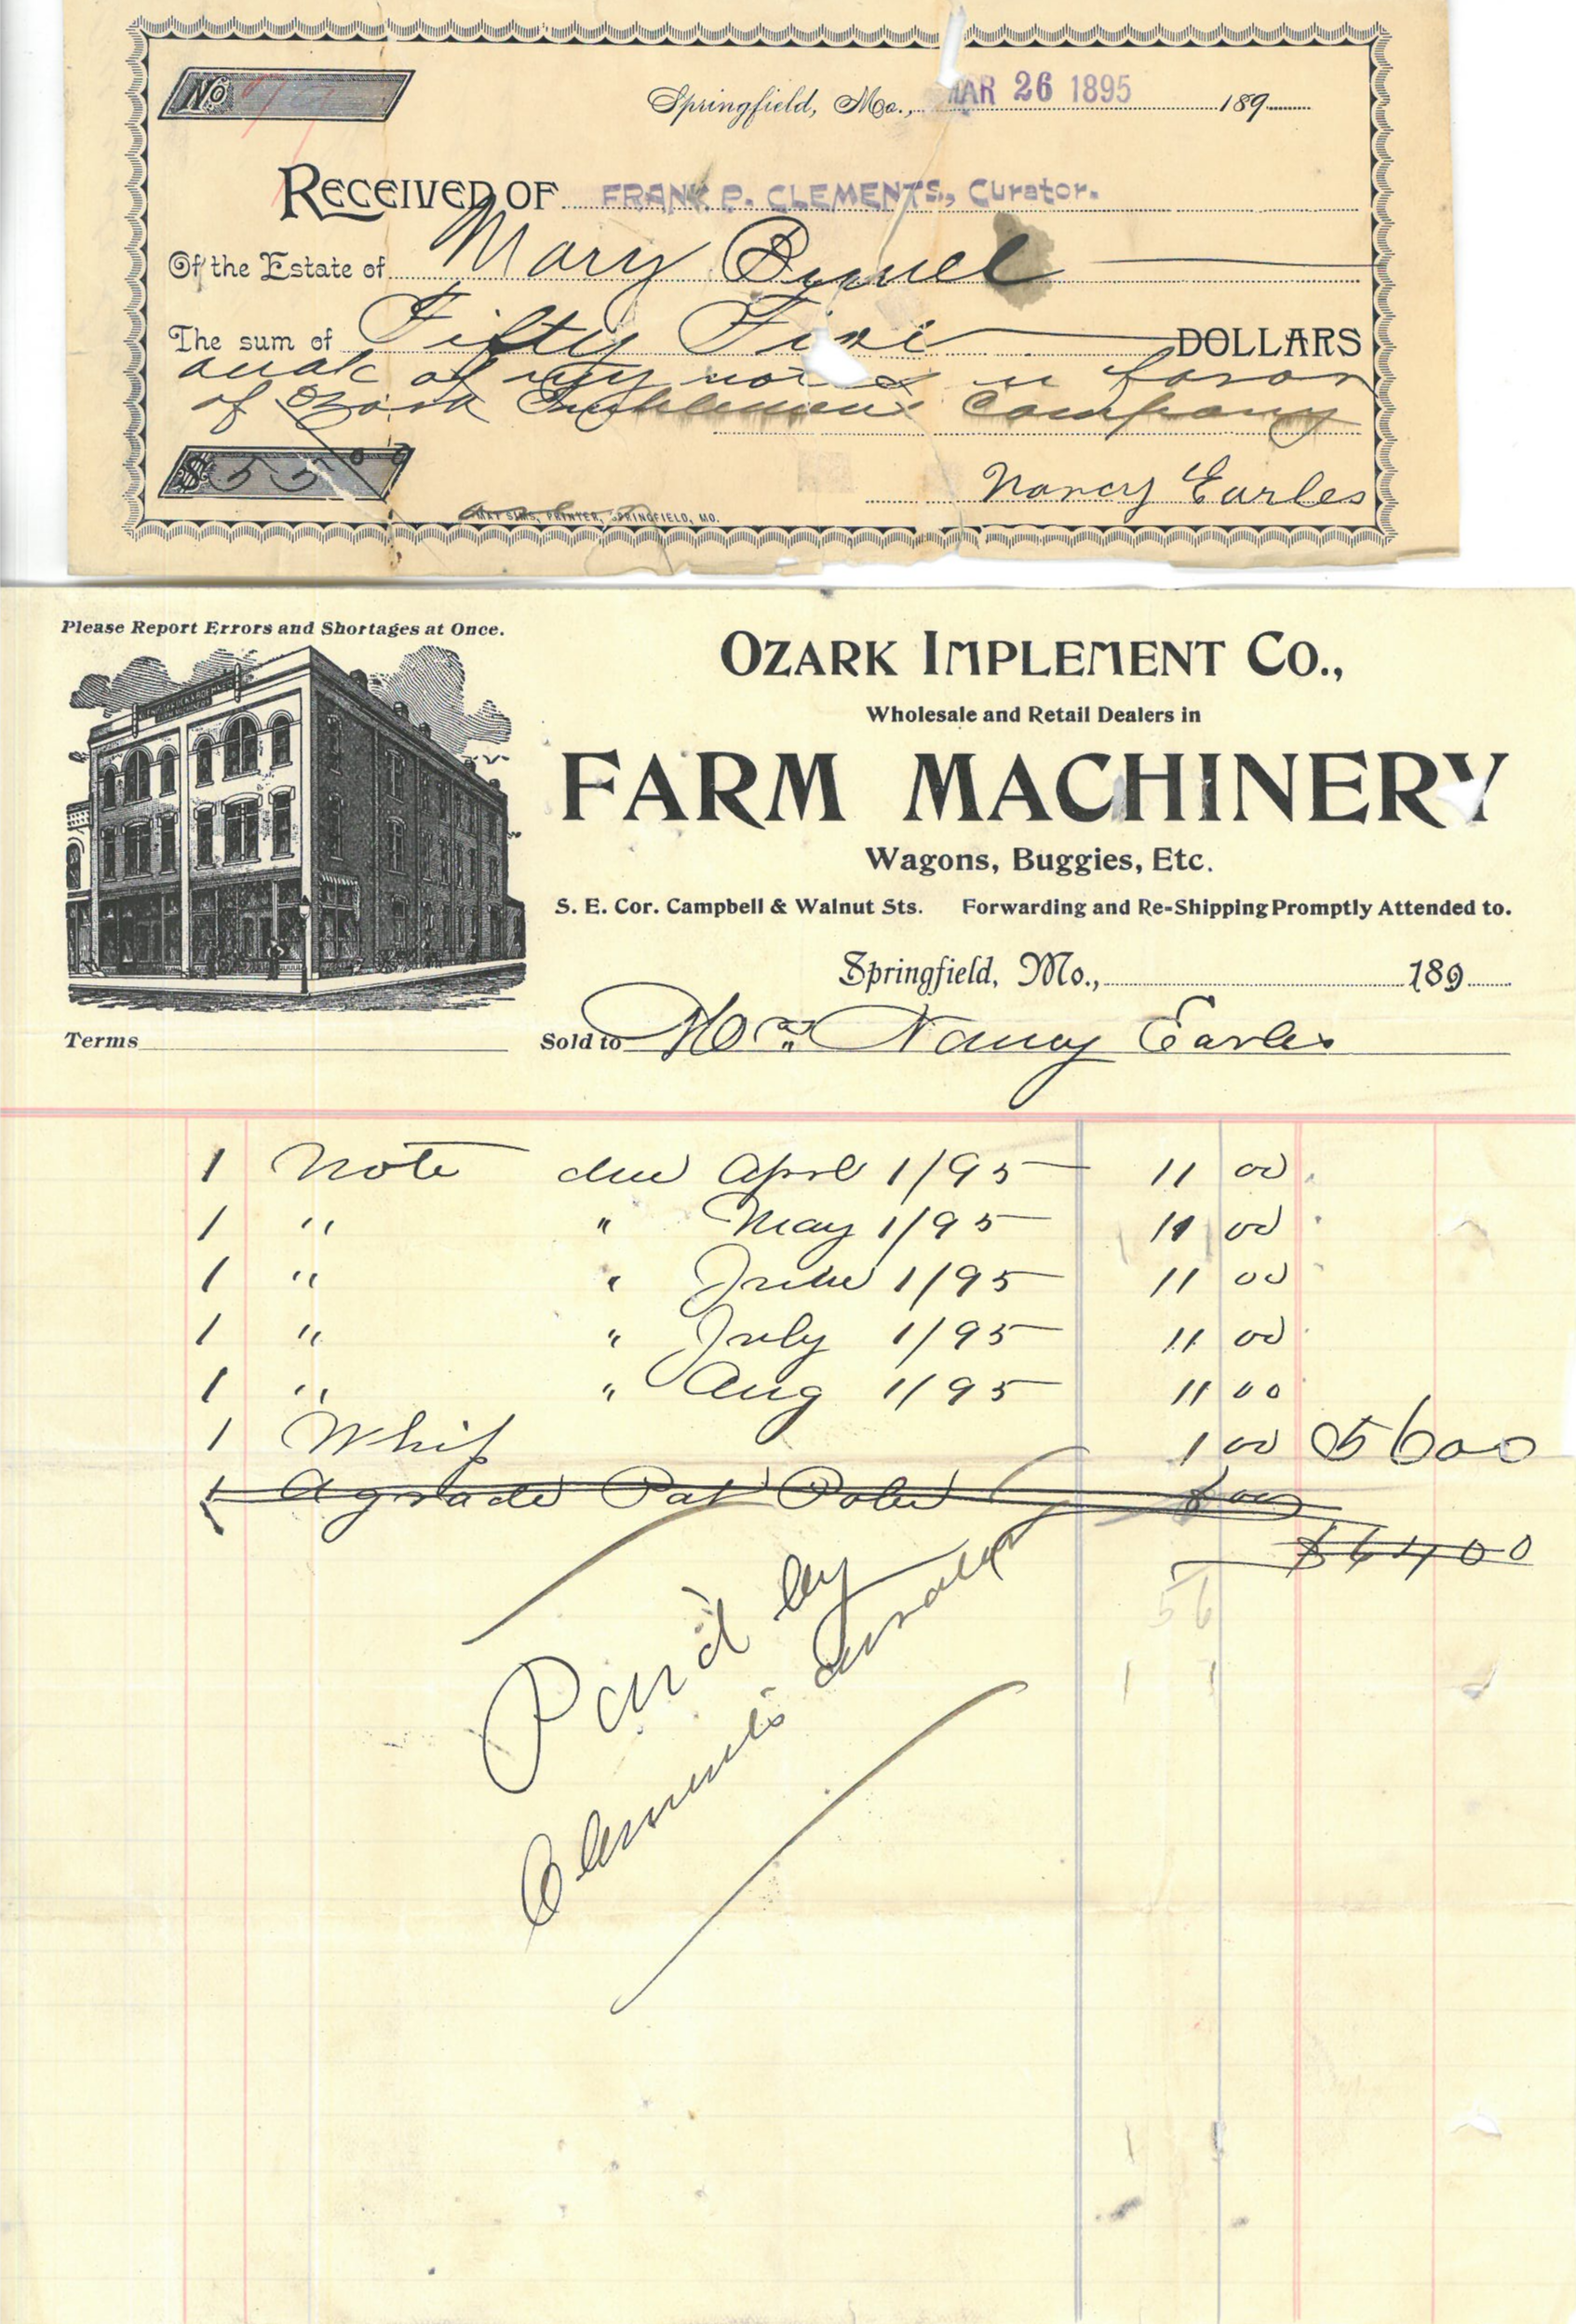 No
Springfield, Mo., MAR 26 1895 189
RECEIVED OF FRANK P. CLEMENTS, Curator.
Of the Estate of Mary
The sum of Fifty Five DOLLARS
of my note in favor
of Ozark Implement Company
$ 55 00
Nancy Earles
SIMS, PRINTER, SPRINGFIELD, MO.
Please Report Errors and Shortages at Once.
OZARK IMPLEMENT CO.,
Wholesale and Retail Dealers in
FARM MACHINERY
Wagons, Buggies, Etc.
S. E. Cor. Campbell & Walnut Sts. Forwarding and Re-Shipping Promptly Attended to.
Springfield, Mo., 189
Terms Sold to Mrs Nancy Earles
1 Note due Aprl 1/95 11 00
1 " " May 1/95 11 00
1 " " June 1/95 11 00
1 " " July 1/95 11 00
1 " " Aug 1/95 11 00
1 Whip 1 00 56 00
1 A grade Pat Poles 8 00
$64 00
56
Paid by
Clements curator